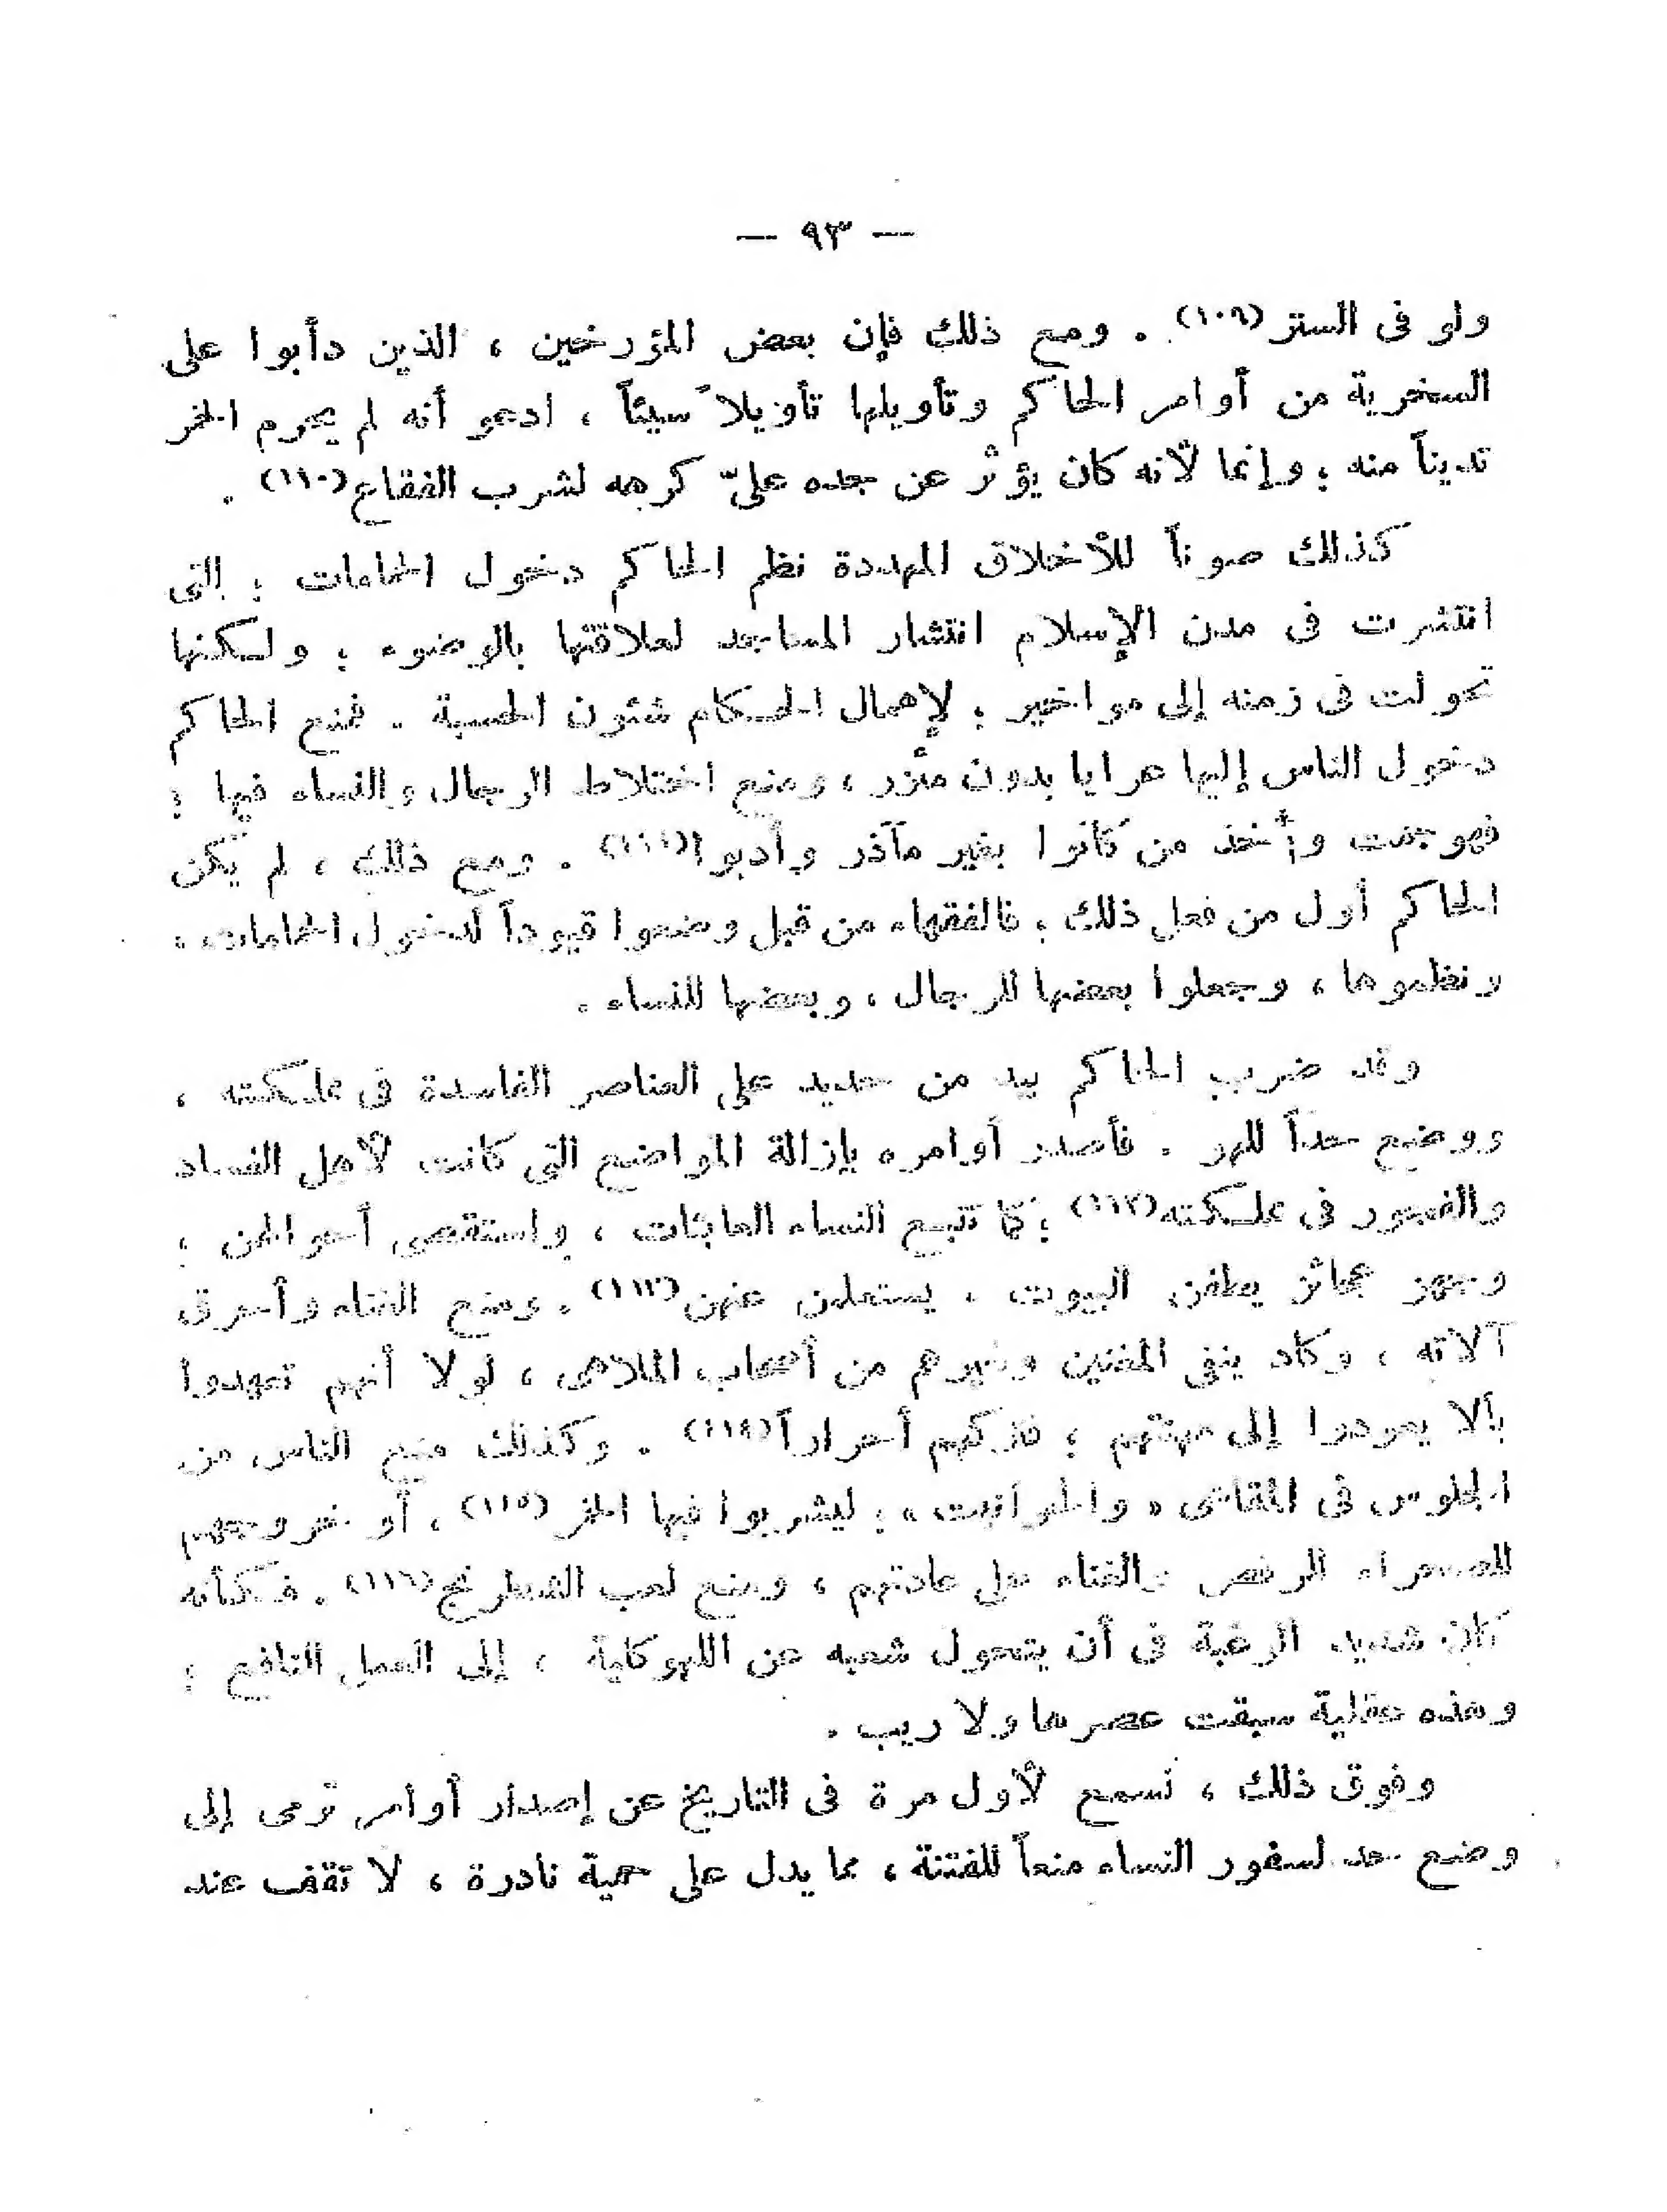 — ٩٣ —
ولو فى الستر (١٠٩) . ومع ذلك فإن بعض المؤرخين ، الذين دأبوا على
السخرية من أوامر الحاكم وتأويلها تأويلاً سيئاً ، ادعو أنه لم يحرم الخمر
تديناً منه ؛ وإنما لأنه كان يؤثر عن جده علىّ كرهه لشرب الفقاع (١١٠) .
كذلك صوناً للأخلاق المهددة نظم الحاكم دخول الحمامات ؛ التى
انتشرت فى مدن الإسلام انتشار المساجد لعلاقتها بالوضوء ؛ ولكنها
تحولت فى زمنه إلى مواخير ؛ لإهمال الحكام شئون الحسبة . فمنع الحاكم
دخول الناس إليها عرايا بدون مئزر ، ومنع اختلاط الرجال والنساء فيها ؛
فهوجمت وأُخذ من كانوا بغير مآذر وأدبوا (١١١) . ومع ذلك ، لم يكن
الحاكم أول من فعل ذلك ؛ فالفقهاء من قبل وضعوا قيوداً لدخول الحمامات ،
ونظموها ، وجعلوا بعضها للرجال ، وبعضها للنساء .
وقد ضرب الحاكم بيد من حديد على العناصر الفاسدة فى مملكته ،
ووضع حداً للهو . فأصدر أوامره بإزالة المواضع التى كانت لأهل الفساد
والفجور فى مملكته (١١٢) ؛ كما تتبع النساء العابثات ، واستقصى أحوالهن ؛
وجهز عجائز يطفن البيوت ، يستعلمن عنهن (١١٣) . ومنع الغناء وأحرق
آلاته ، وكاد ينفى المغنين وغيرهم من أصحاب الملاهى ، لولا أنهم تعهدوا
بألا يعودوا إلى مهنتهم ؛ فتركهم أحراراً (١١٤) . وكذلك منع الناس من
الجلوس فى المقاهى « والحوانيت » ؛ ليشربوا فيها الخمر (١١٥) ، أو خروجهم
للصحراء للرقص والغناء على عادتهم ، ومنع لعب الشطرنج (١١٦) . فكأنه
كان شديد الرغبة فى أن يتحول شعبه عن اللهو كلية ، إلى العمل النافع ؛
وهذه عقلية سبقت عصرها ولا ريب .
وفوق ذلك ، نسمع لأول مرة فى التاريخ عن إصدار أوامر ترمى إلى
وضع حد لسفور النساء منعاً للفتنة ، مما يدل على حمية نادرة ، لا تقف عند